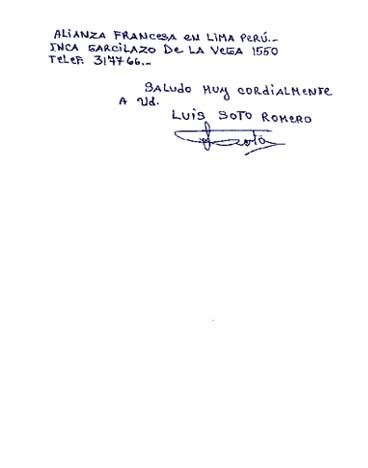 ALIANZA FRANCESA EN LIMA PERÚ.-
INCA GARCILAZO DE LA VEGA 1550
TELEF. 317766.-
SALUDO MUY CORDIALMENTE
A Ud.
LUIS SOTO ROMERO
Soto